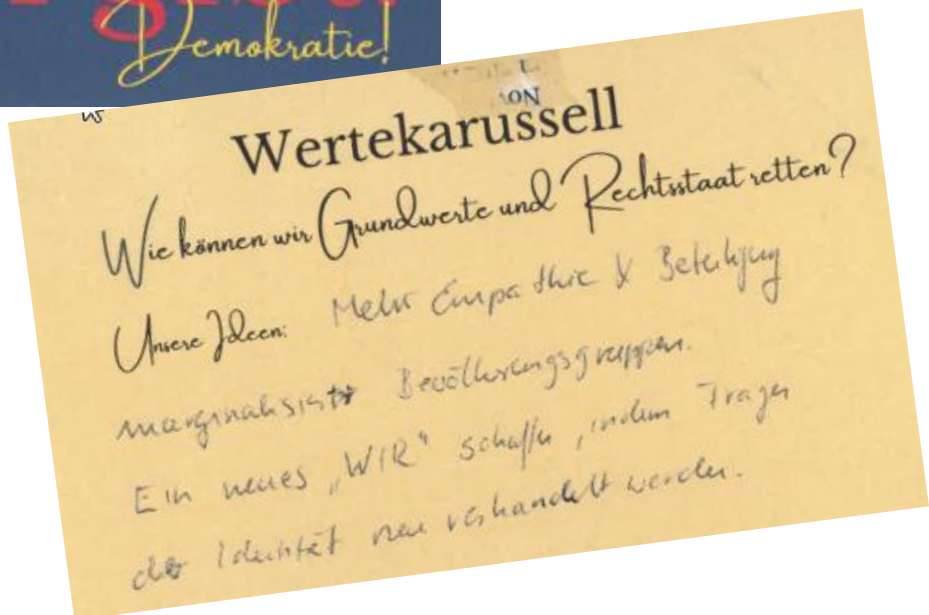 Demokratie!
Wertekarussell
Wie können wir Grundwerte und Rechtsstaat retten?
Unsere Ideen: Mehr Empathie & Beteiligung
marginalisierter Bevölkerungsgruppen.
Ein neues „WIR“ schaffen, indem Fragen
der Identität neu verhandelt werden.